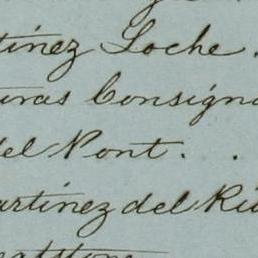 tinez Loche.
uras Consigna
del Pont. .
artinez del Rio